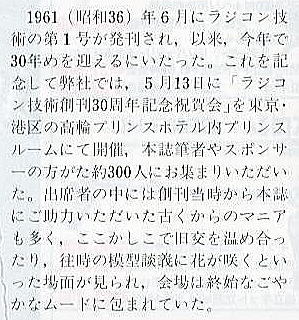 1961（昭和36）年6月にラジコン技
術の第1号が発刊され，以来，今年で
30年めを迎えるにいたった。これを記
念して弊社では，5月13日に「ラジコ
ン技術創刊30周年記念祝賀会」を東京・
港区の高輪プリンスホテル内プリンス
ルームにて開催，本誌筆者やスポンサ
ーの方がた約300人にお集まりいただい
た。出席者の中には創刊当時から本誌
にご助力いただいた古くからのマニア
も多く，ここかしこで旧交を温め合っ
たり，往時の模型談義に花が咲くとい
った場面が見られ，会場は終始なごや
かなムードに包まれていた。